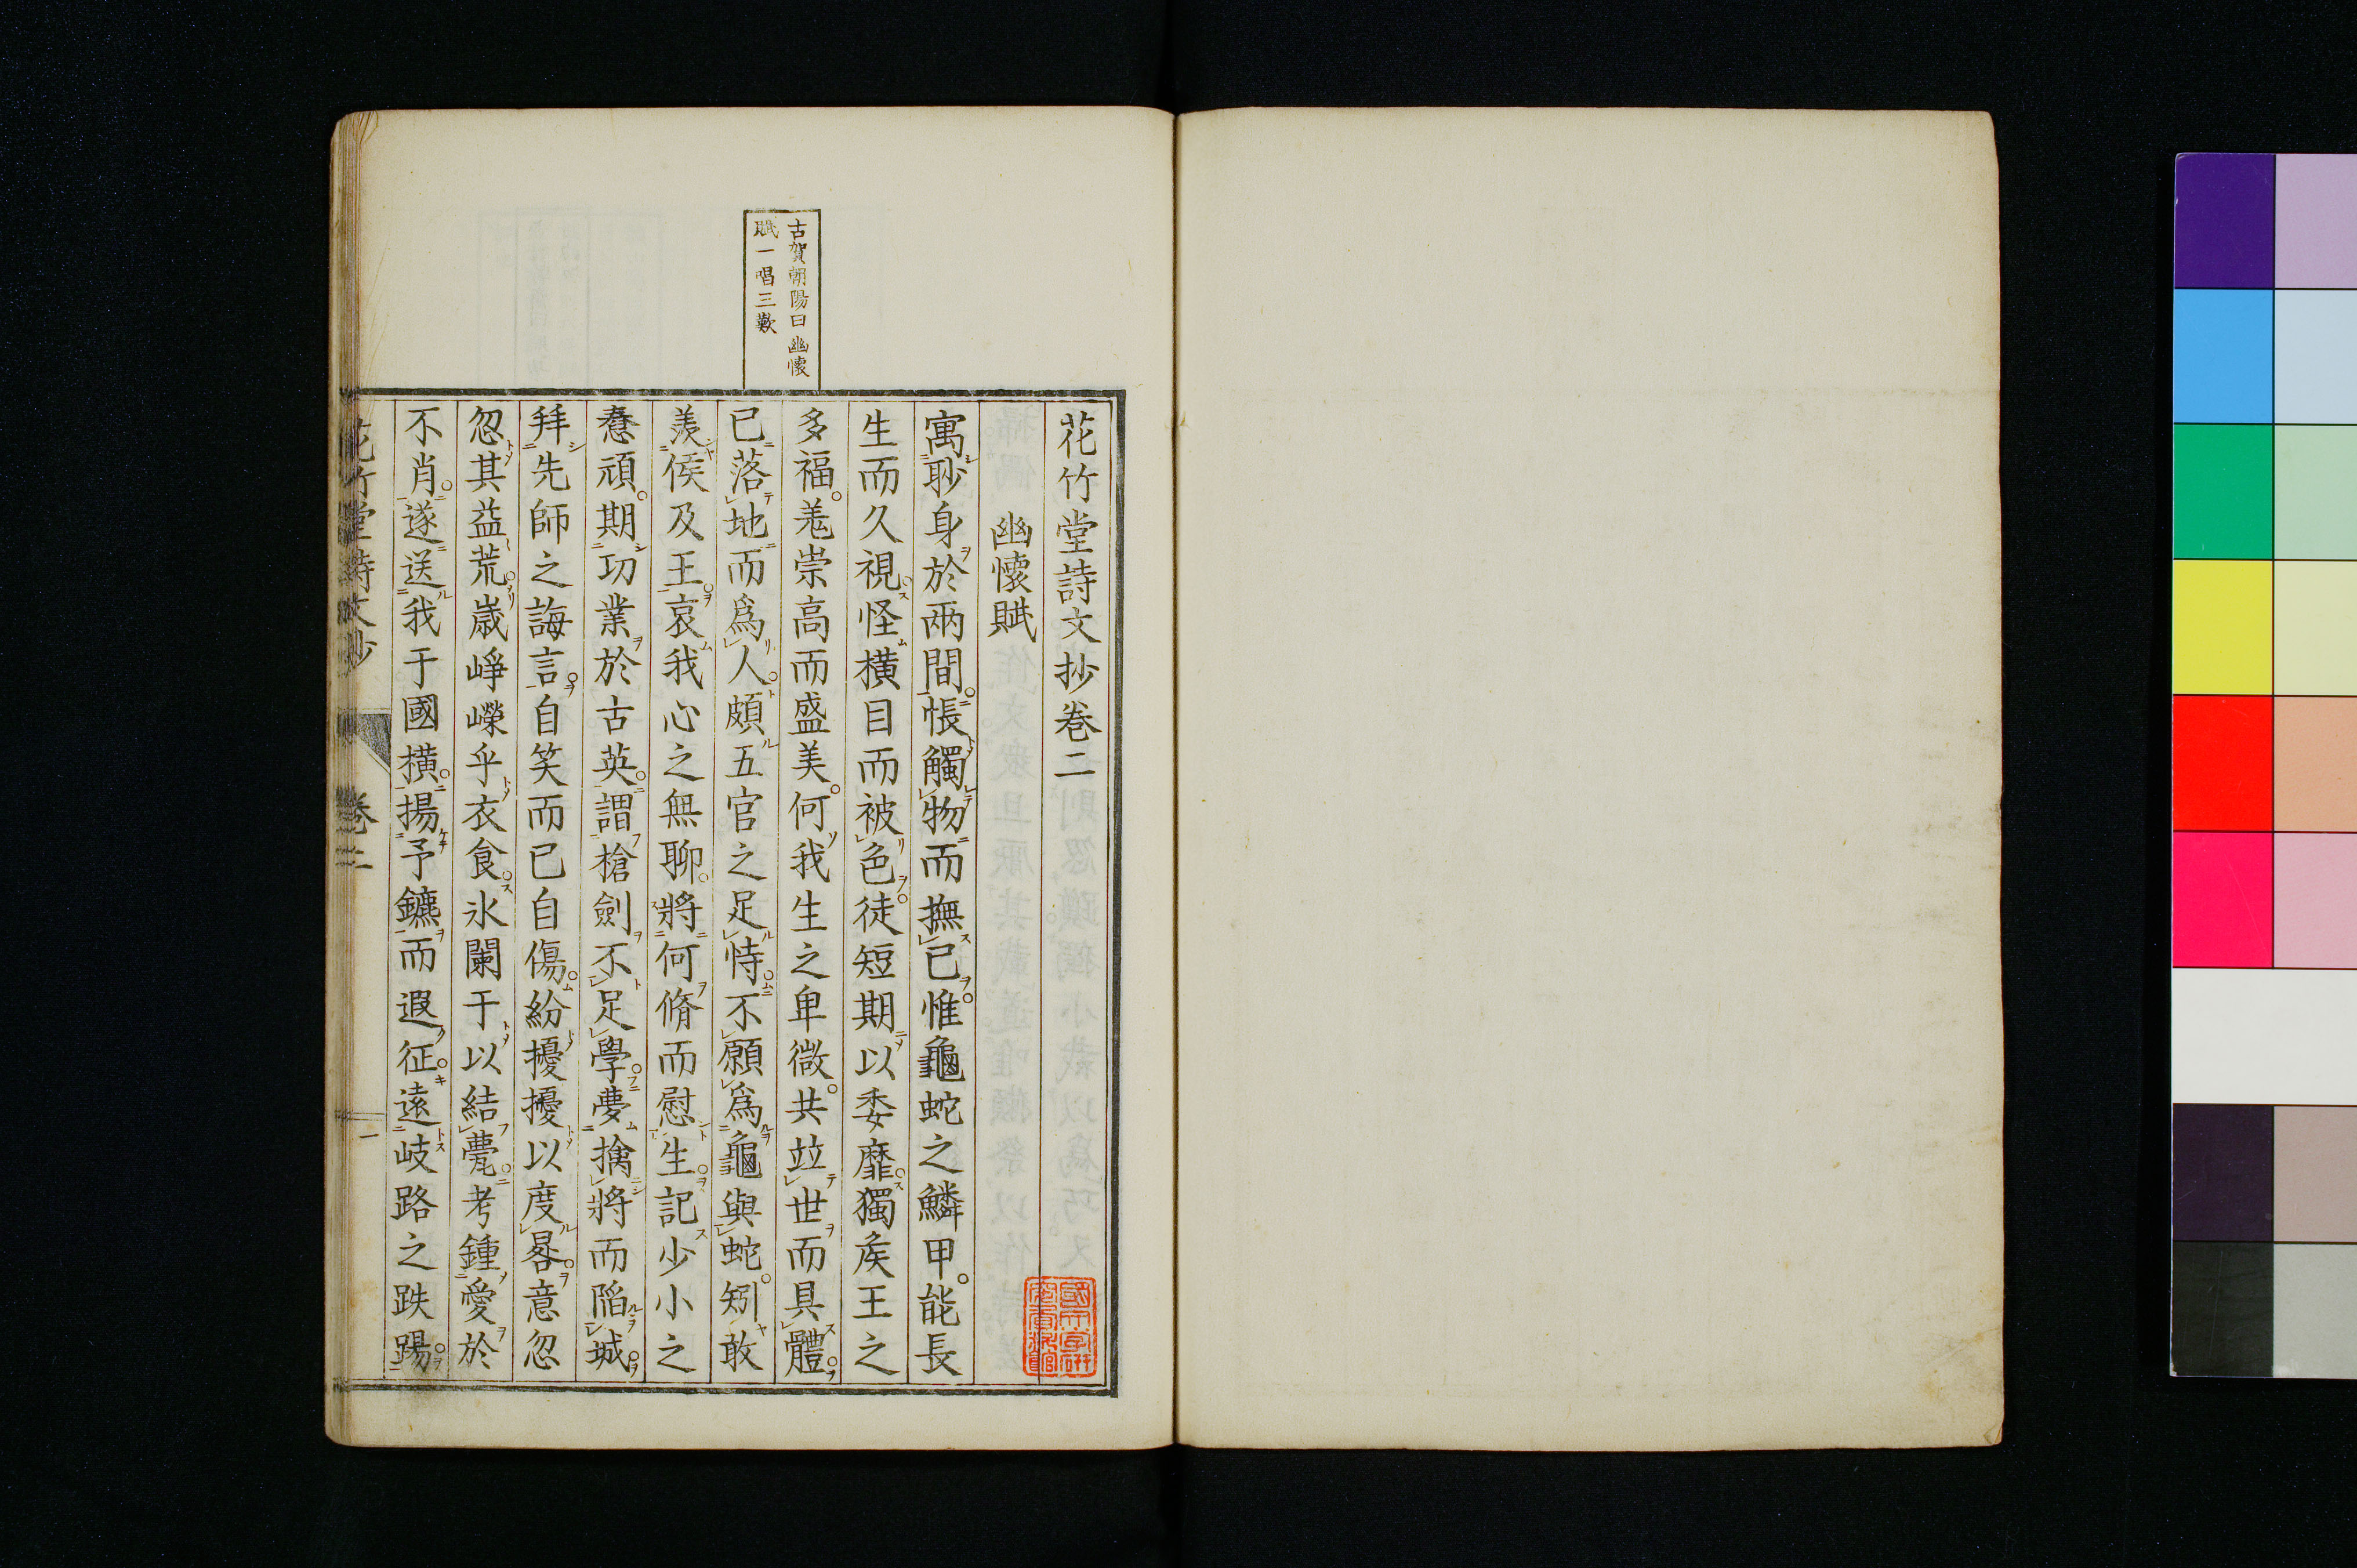 古賀朝陽曰幽懷
賦一唱三歎
花竹堂詩文抄卷二
幽懷賦
寓眇身於兩間悵觸物而撫己惟龜蛇之鱗甲能長
生而久視怪橫目而被色徒短期以委靡獨矦王之
多福羗崇高而盛美何我生之卑微共竝世而具體
已落地而爲人頗五官之足恃不願爲龜與蛇矧敢
羨侯及王哀我心之無聊將何脩而慰生記少小之
惷頑期功業於古英謂槍劍不足學夢擒將而陷城
拜先師之誨言自笑而已自傷紛擾擾以度晷意忽
忽其益荒歲崢嶸乎衣食氷闌于以結甍考鍾愛於
不肖遂送我于國橫揚予鑣而遐征遠岐路之跌踼
花竹堂詩文抄 卷二 一